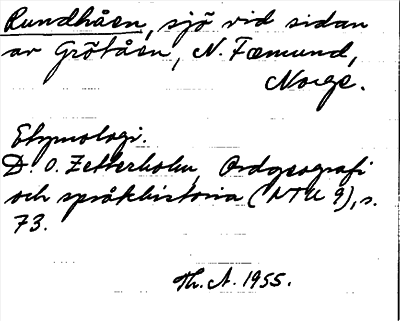 Rundhåen, sjö vid sidan
av Grötåen, N. Fæmund,
Norge.
Etymologi.
D. O. Zetterholm, Ordgeografi
och språkhistoria (NTU 9), s.
73.
Th. A. 1955.